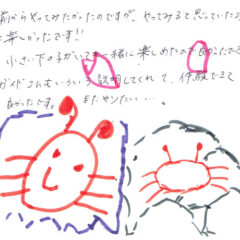 前からやってみたかったのですが、やってみると思っていた
楽しかったです!!
小さい下の子がいても一緒に楽しめたので良かったで
ガイドさんもいろいろ説明してくれて、体験できて
良かったです。またやりたい…。